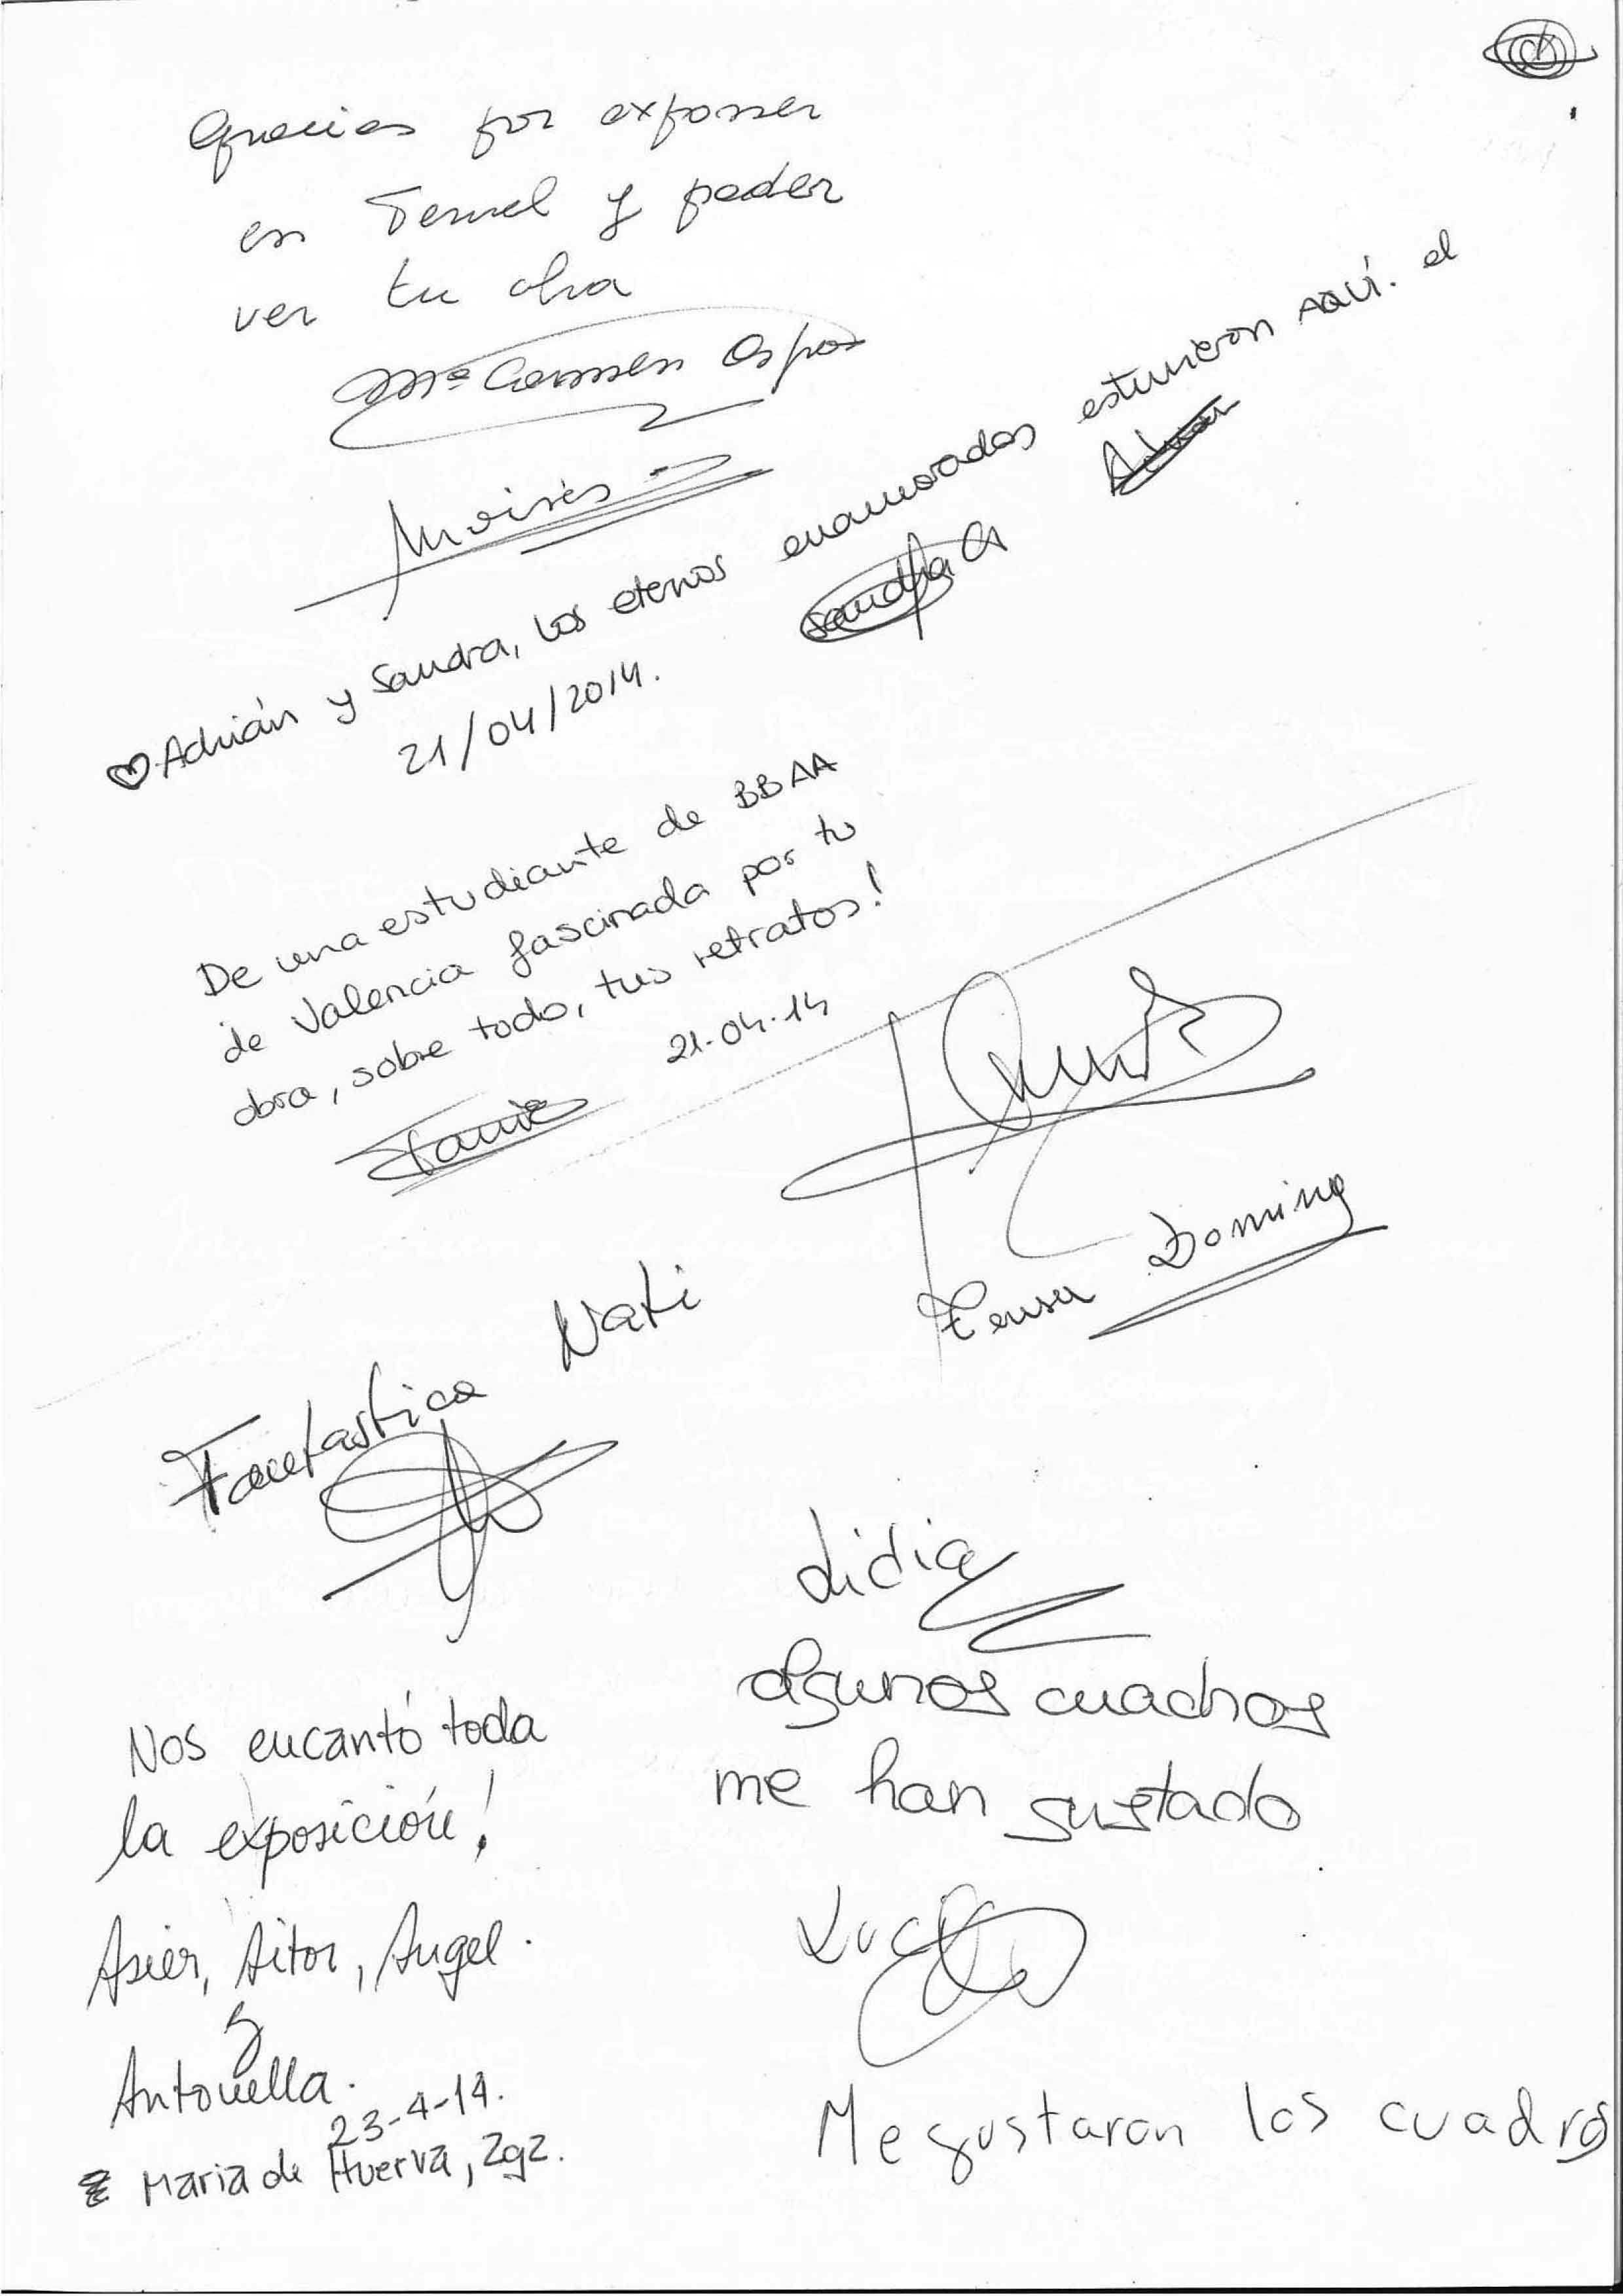 Gracias por exponer
en Teruel y poder
ver tu obra
Mª Carmen
Moisés
Adrián y Sandra, los eternos enamorados estuvieron AQUÍ. el
21/04/2014.
Sandra
Adrián
De una estudiante de BBAA
de Valencia fascinada por tu
obra, sobre todo, tus retratos!
21-04-14
Tania
Domingo
Fantastica Nati
Lidia
algunos cuadros
me han gustado
Nos encantó toda
la exposición!
Asier, Aitor, Angel.
y
Antonella.
23-4-14.
Maria de Huerva, Zgz.
Lucía
Me gustaron los cuadros